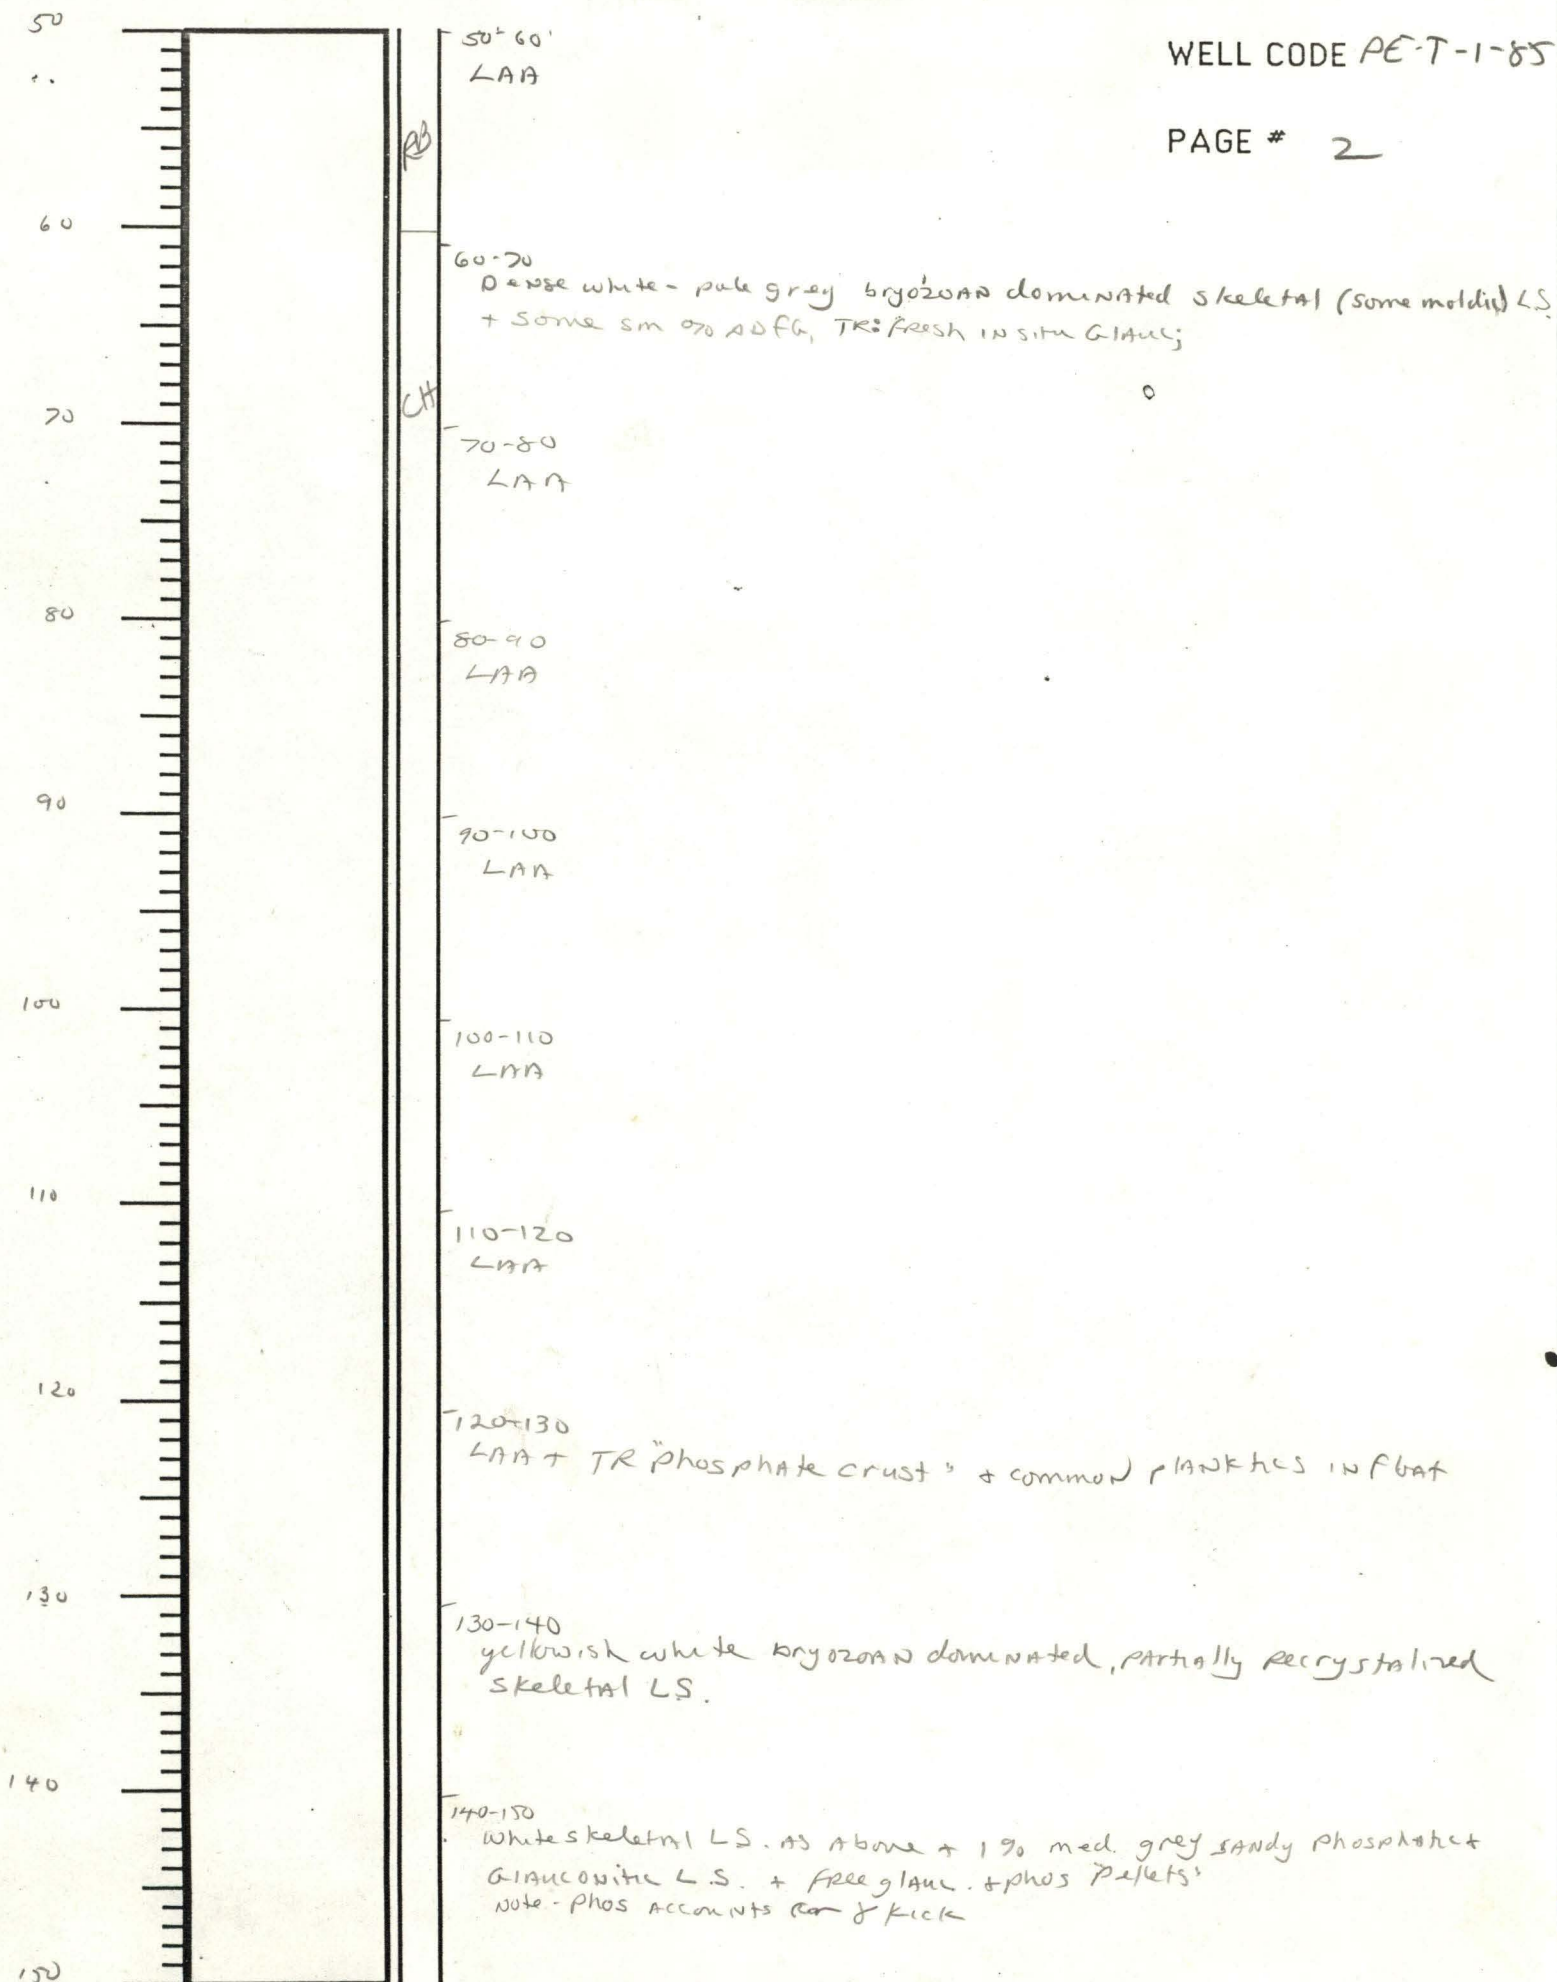 WELL CODE PE-T-1-85
PAGE # 2
50
50'-60'
LAA
RB
60
60-70
Dense white - pale grey bryozoAN domiNAted skeletAl (some moldic) LS.
+ some sm % , TR: Fresh IN situ GlAuc;
CH
70
70-80
LAA
80
80-90
LAA
90
90-100
LAA
100
100-110
LAA
110
110-120
LAA
120
120-130
LAA + TR "PhosphAte crust" + commoN plANktics IN floAt
130
130-140
yellowish white bryozoAN domiNAted, pArtiAlly Recrystalized
skeletAl LS.
140
140-150
white skeletAl LS. AS Above + 1% med. grey sANdy phosphAtic +
GlAucoNitic L.S. + free glAuc. + phos "Pellets"
Note - Phos AccouNts for γ kick
150